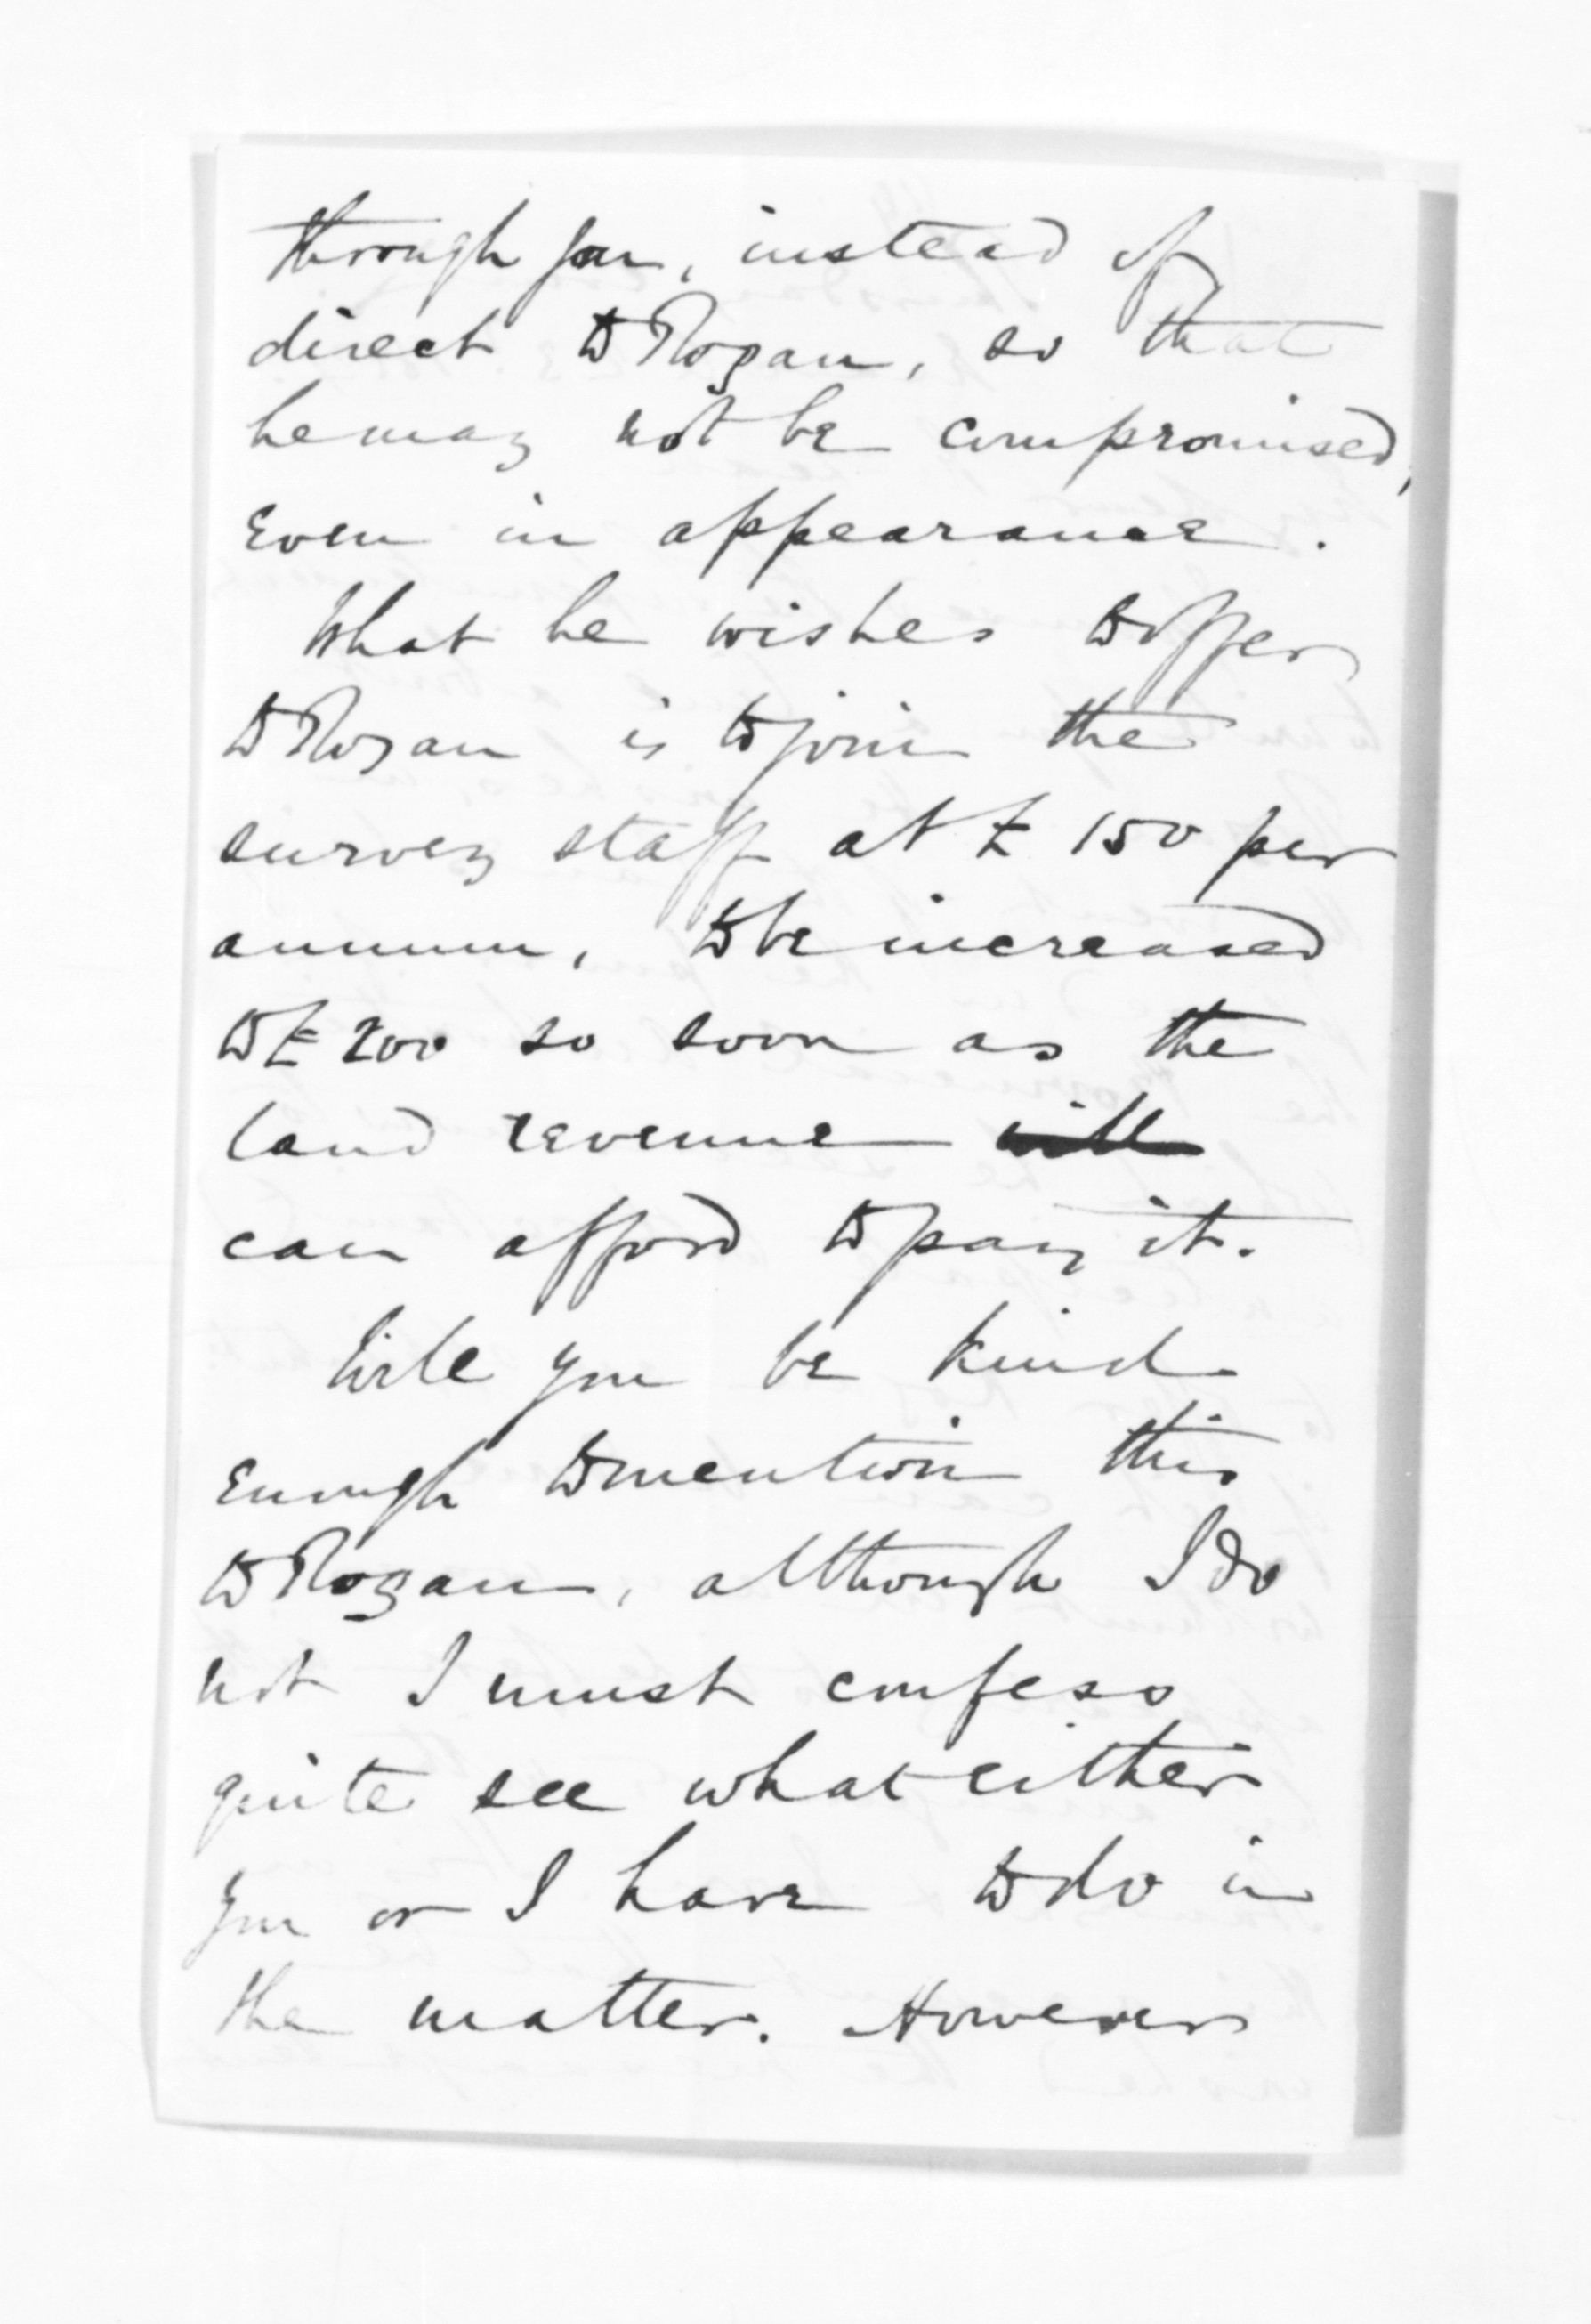 through you, instead of
direct to Rogan, so that
he may not be compromised,
even in appearance.
What he wishes to offer
to Rogan is to join the
survey staff at £150 per
annum, to be increased
to £200 so soon as the
land revenue will
can afford to pay it.
Will you be kind
enough to mention this
to Rogan, although I do
not I must confess
quite see what either
you or I have to do in
the matter. However